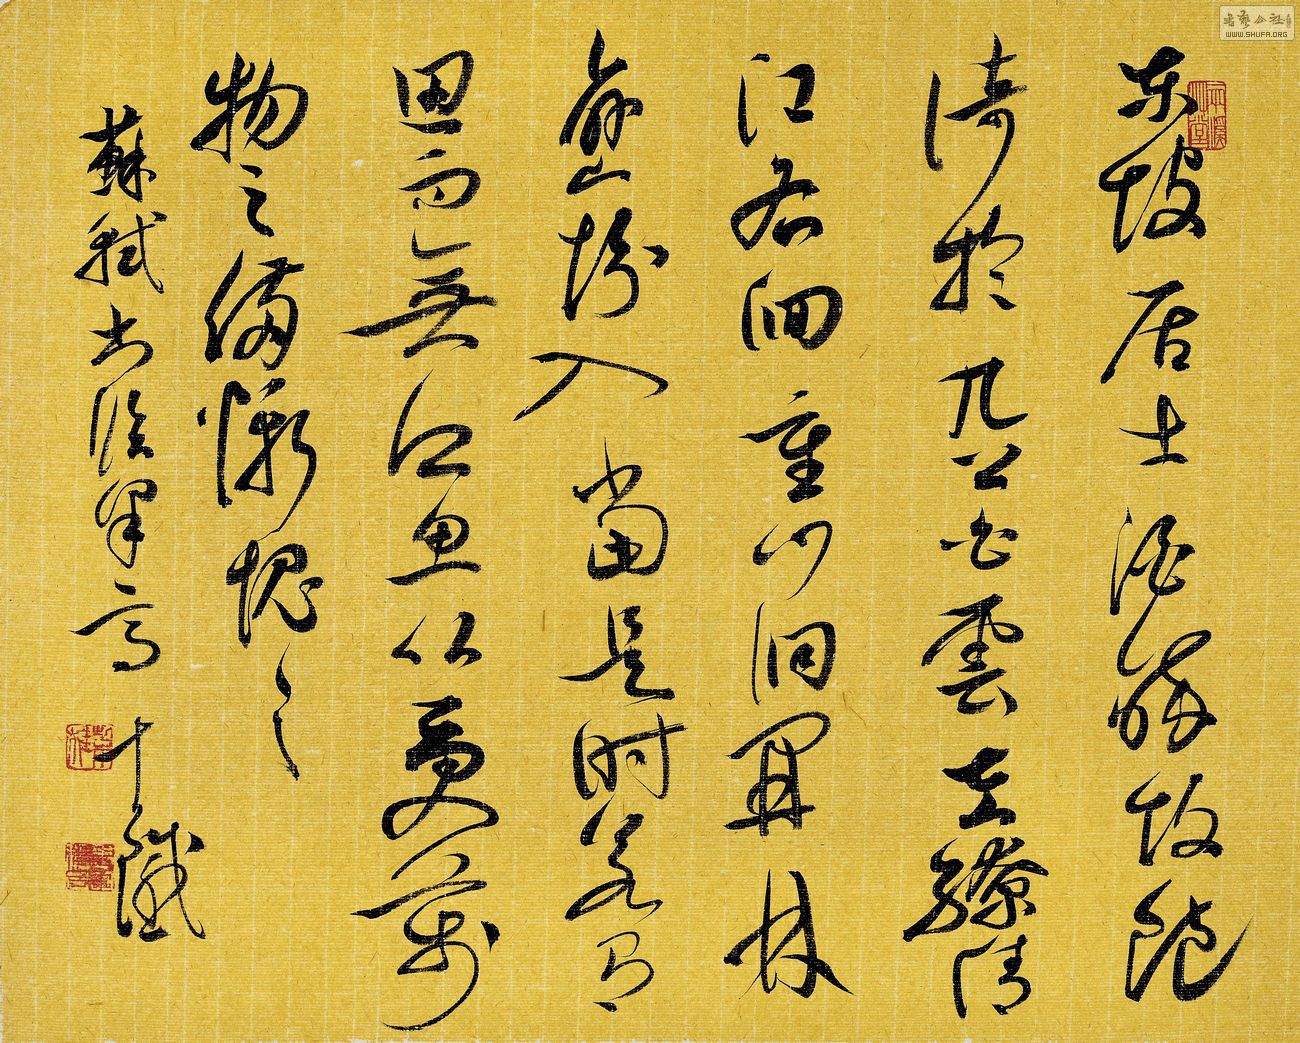 东坡居士酒醉飯飽
倚於几上白雲左繚清
江右洄重门洞開林
巒坌入當是時若有
思而無所思以受萬
物之備慚愧々
蘇軾书臨皋亭
書藝公社
WWW.SHUFA.ORG